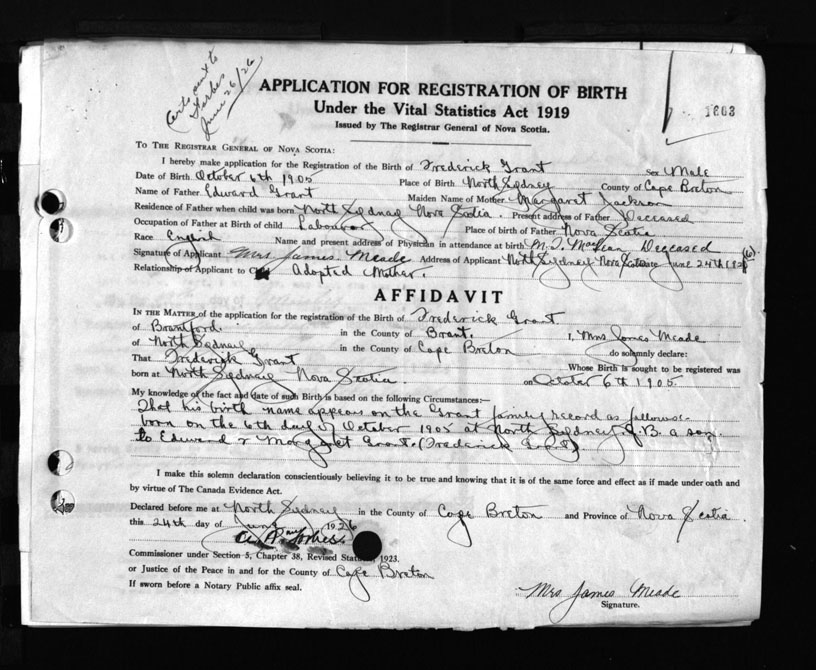 Certs sent to
Forbes
June 26/26
APPLICATION FOR REGISTRATION OF BIRTH
Under the Vital Statistics Act 1919
Issued by The Registrar General of Nova Scotia.
1803
TO THE REGISTRAR GENERAL OF NOVA SCOTIA:
I hereby make application for the Registration of the Birth of Frederick Grant Sex Male
Date of Birth October 6th 1905 Place of Birth North Sydney County of Cape Breton
Name of Father Edward Grant Maiden Name of Mother Margaret Jackson
Residence of Father when child was born North Sydney Nova Scotia. Present address of Father Deceased
Occupation of Father at Birth of child Labourer Place of birth of Father Nova Scotia
Race English Name and present address of Physician in attendance at birth M. D. MacLean Deceased
Signature of Applicant Mrs James Meade Address of Applicant North Sydney Nova Scotia Date June 24th 1926
Relationship of Applicant to Child Adopted Mother.
AFFIDAVIT
IN THE MATTER of the application for the registration of the Birth of Frederick Grant
of Brantford in the County of Brant. I, Mrs James Meade
of North Sydney in the County of Cape Breton do solemnly declare:
That Frederick Grant Whose Birth is sought to be registered was
born at North Sydney Nova Scotia. on October 6th 1905.
My knowledge of the fact and date of such Birth is based on the following Circumstances:—
That his birth name appears on the Grant family record as follows:-
born on the 6th day of October 1905 at North Sydney. C.B. a son
to Edward & Margaret Grant. (Frederick Grant)
I make this solemn declaration conscientiously believing it to be true and knowing that it is of the same force and effect as if made under oath and
by virtue of The Canada Evidence Act.
Declared before me at North Sydney in the County of Cape Breton and Province of Nova Scotia
this 24th day of June 1926
Commissioner under Section 5, Chapter 38, Revised Statutes, 1923.
or Justice of the Peace in and for the County of Cape Breton
If sworn before a Notary Public affix seal.
Mrs James Meade
Signature.